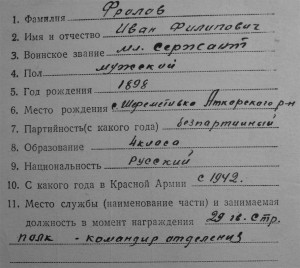 1. Фамилия Фролов
2. Имя и отчество Иван Филипович
3. Воинское звание мл. сержант
4. Пол мужской
5. Год рождения 1898
6. Место рождения с. Шереметивка Аткарского р-н
7. Партийность(с какого года) безпартийный
8. Образование 4 класса
9. Национальность Русский
10. С какого года в Красной Армии с 1942.
11. Место службы (наименование части) и занимаемая
должность в момент награждения 29 гв. стр.
полк - командир отделения